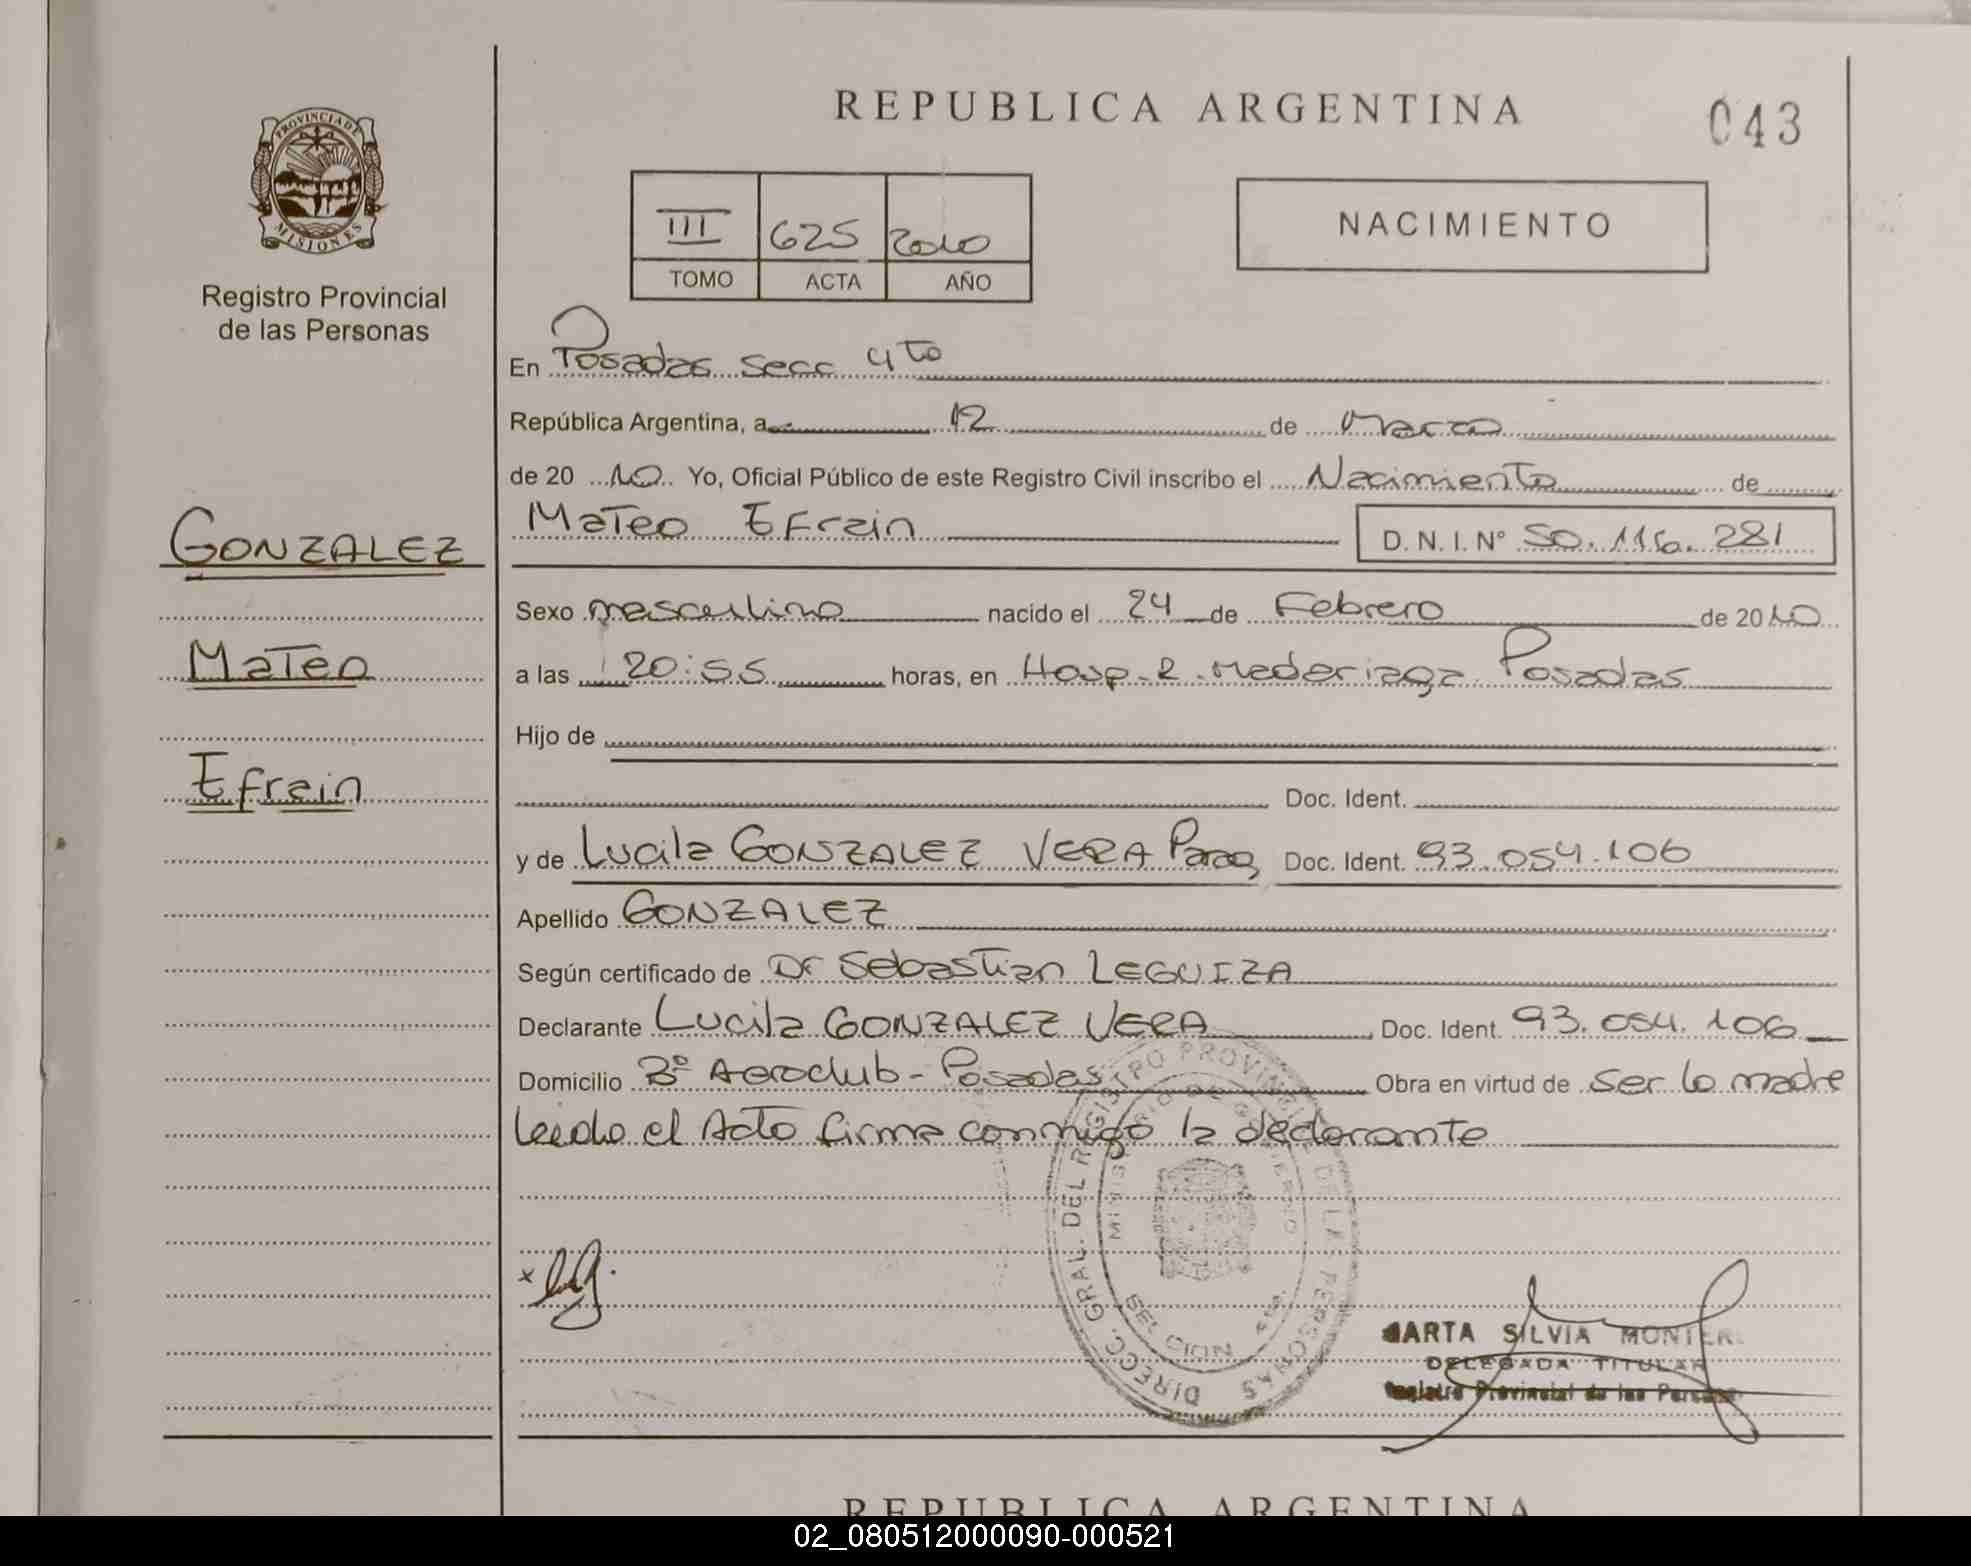 REPUBLICA ARGENTINA
043
PROVINCIA DE
MISIONES
Registro Provincial
de las Personas
III 625 2010
TOMO ACTA AÑO
NACIMIENTO
En Posadas Secc 4to
República Argentina, a 12 de Marzo
de 20 10 Yo, Oficial Público de este Registro Civil inscribo el Nacimiento de
Mateo Efrain D. N. I. Nº 50.116.281
GONZALEZ
Mateo
Efrain
Sexo masculino nacido el 24 de Febrero de 2010
a las 20:55 horas, en Hosp. R. Madariaga Posadas
Hijo de
Doc. Ident.
y de Lucila GONZALEZ VERA Parag Doc. Ident. 93.054.106
Apellido GONZALEZ
Según certificado de Dr Sebastian LEGUIZA
Declarante Lucila GONZALEZ VERA Doc. Ident. 93.054.106
Domicilio Bº Aeroclub - Posadas Obra en virtud de ser la madre
Leido el Acto firma conmigo la declarante
DIRECC. GRAL. DEL REGISTRO PROVINC. DE LAS PERSONAS
MINISTERIO DE GOBIERNO
SEL CION 4ta.
MARTA SILVIA MONTER
DELEGADA TITULAR
Registro Provincial de las Personas
REPUBLICA ARGENTINA
02_080512000090-000521